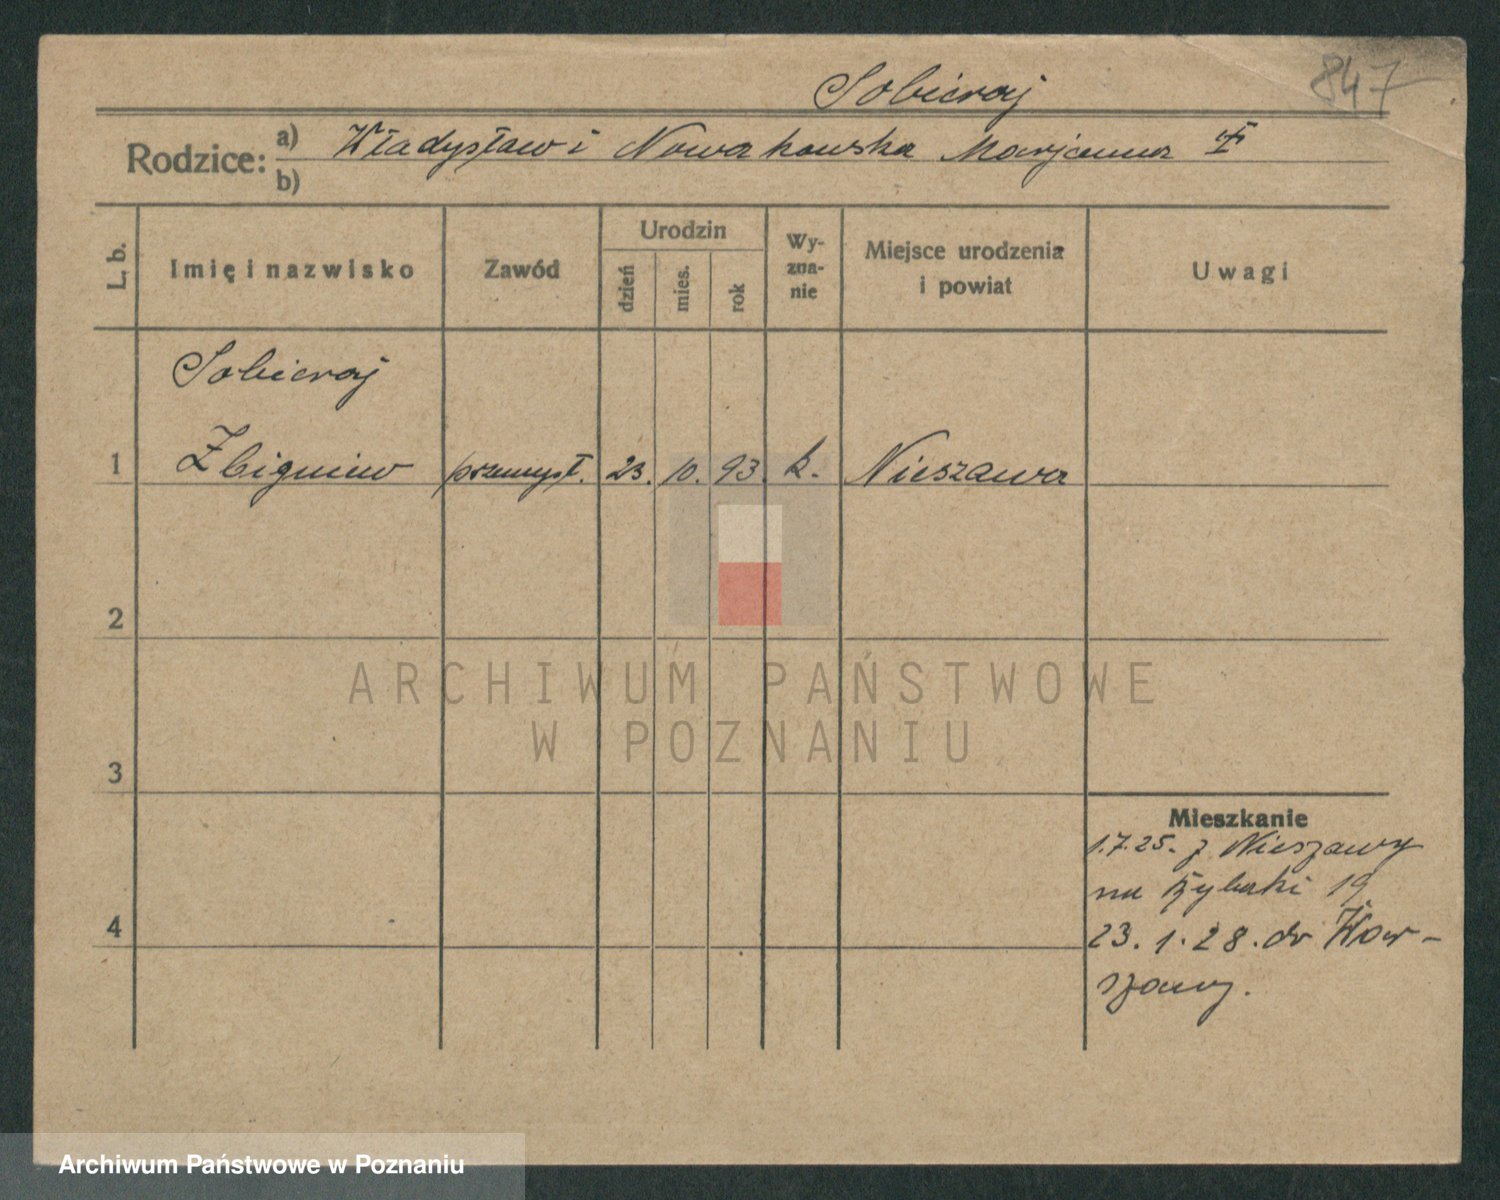 847
Sobieraj
Rodzice: a) Władysław i Nowakowska Marjanna
b)
L. b.
Imię i nazwisko
Zawód
Urodzin
dzień
mies.
rok
Wy-
zna-
nie
Miejsce urodzenia
i powiat
Uwagi
Sobieraj
1 Zbigniew przemysł. 23. 10. 93. k. Nieszawa
2
3
4
Mieszkanie
1.7.25. z Nieszawy
na Rybaki 19
23.1.28. do War-
szawy.
ARCHIWUM PAŃSTWOWE
W POZNANIU
Archiwum Państwowe w Poznaniu